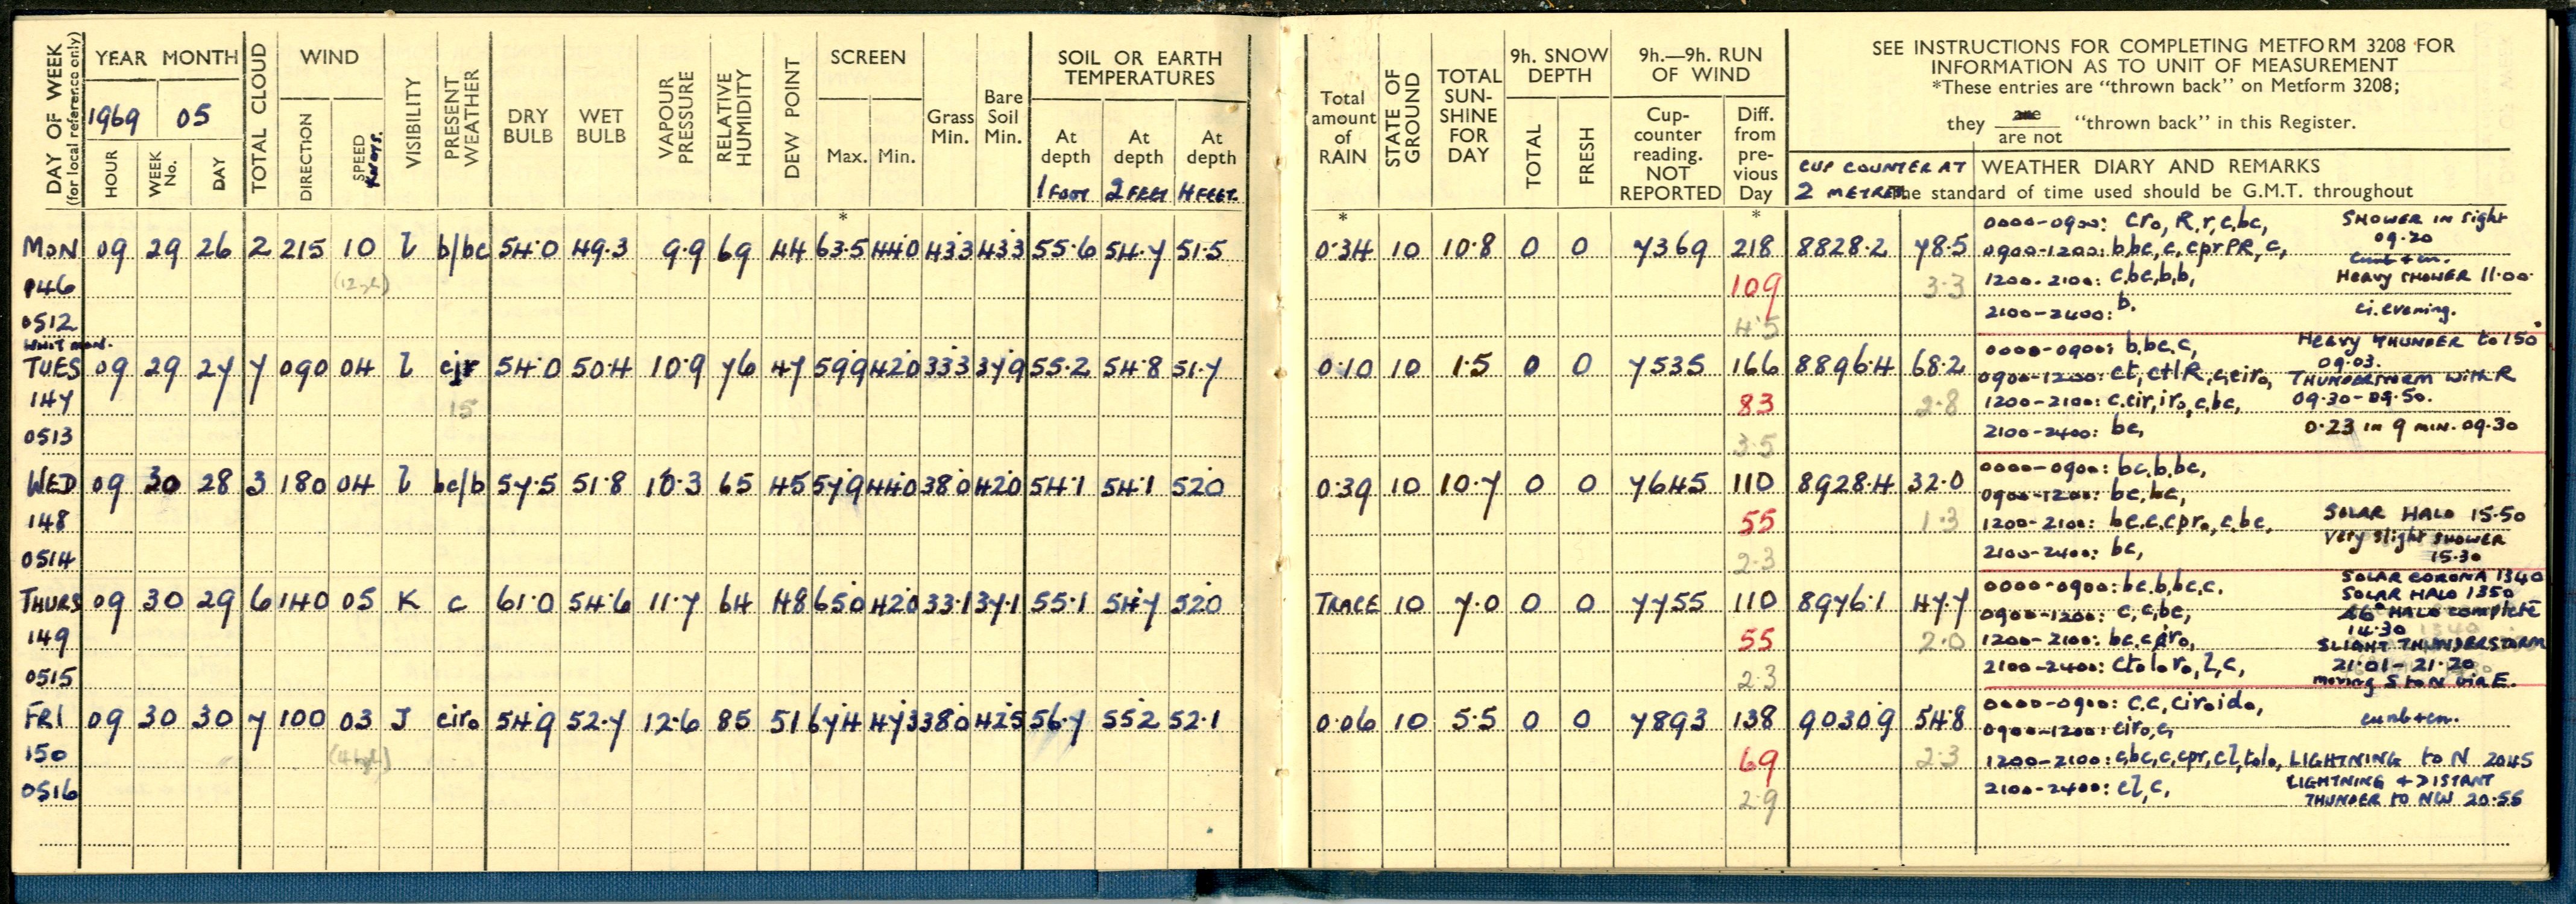 DAY OF WEEK
(for local reference only)
YEAR MONTH
1969 05
HOUR
WEEK No.
DAY
TOTAL CLOUD
WIND
DIRECTION
SPEED
KNOTS.
VISIBILITY
PRESENT WEATHER
DRY BULB
WET BULB
VAPOUR PRESSURE
RELATIVE HUMIDITY
DEW POINT
SCREEN
Max. Min.
Grass Min.
Bare Soil Min.
SOIL OR EARTH TEMPERATURES
At depth At depth At depth
1 FOOT 2 FEET 4 FEET.
Total amount of RAIN
STATE OF GROUND
TOTAL SUN-SHINE FOR DAY
9h. SNOW DEPTH
TOTAL
FRESH
9h.—9h. RUN OF WIND
Cup-counter reading. NOT REPORTED
Diff. from pre-vious Day
SEE INSTRUCTIONS FOR COMPLETING METFORM 3208 FOR
INFORMATION AS TO UNIT OF MEASUREMENT
*These entries are "thrown back" on Metform 3208;
they are / are not "thrown back" in this Register.
CUP COUNTER AT
2 METRES
WEATHER DIARY AND REMARKS
The standard of time used should be G.M.T. throughout
* * *
MON 09 29 26 2 215 10 l b/bc 54.0 49.3 9.9 69 44 63.5 44.0 43.3 43.3 55.6 54.7 51.5 0.34 10 10.8 0 0 7369 218 8828.2 78.5
146 (12 109 3.3
0512 4.5
WHIT MON.
0000-0900: cro, R, r, c, bc, SHOWER IN sight 09.20
0900-1200: b, bc, c, cprPR, c, cumb + cn.
1200-2100: c, bc, b, b, HEAVY SHOWER 11.00
2100-2400: b. ci. evening.
TUES 09 29 27 7 090 04 l cjr 54.0 50.4 10.9 76 47 59.9 42.0 33.3 37.9 55.2 54.8 51.7 0.10 10 1.5 0 0 7535 166 8896.4 68.2
147 15 83 2.8
0513 3.5
0000-0900: b, bc, c, HEAVY THUNDER to 150° 09.03.
0900-1200: ct, ctlR, c, ciro, THUNDERSTORM WITH R
1200-2100: c, cir, iro, c, bc, 09.30-09.50.
2100-2400: bc, 0.23 IN 9 MIN. 09.30
WED 09 30 28 3 180 04 l bc/b 57.5 51.8 10.3 65 45 57.9 44.0 38.0 42.0 54.1 54.1 52.0 0.39 10 10.7 0 0 7645 110 8928.4 32.0
148 55 1.3
0514 2.3
0000-0900: bc, b, bc,
0900-1200: bc, bc,
1200-2100: bc, c, cpro, c, bc, SOLAR HALO 15.50
2100-2400: bc, Very slight SHOWER 15.30
THURS 09 30 29 6 140 05 K c 61.0 54.6 11.7 64 48 65.0 42.0 33.1 37.1 55.1 54.7 52.0 TRACE 10 7.0 0 0 7755 110 8976.1 47.7
149 55 2.0
0515 2.3
0000-0900: bc, b, bc, c. SOLAR CORONA 1340
SOLAR HALO 1350
0900-1200: c, c, bc, 46° HALO complete 14.30
1200-2100: bc, c, iro, SLIGHT THUNDERSTORM
2100-2400: ctoloro, l, c, 21.01-21.20
moving S to N via E.
FRI 09 30 30 7 100 03 J ciro 54.9 52.7 12.6 85 51 67.4 47.3 38.0 42.5 56.7 55.2 52.1 0.06 10 5.5 0 0 7893 138 9030.9 54.8
150 (4 69 2.3
0516 2.9
0000-0900: c, c, ciroido, cumb + cn.
0900-1200: ciro, c,
1200-2100: c, bc, c, cpr, cl, tolo, LIGHTNING to N 2045
2100-2400: cl, c, LIGHTNING + DISTANT
THUNDER to NW 20.55